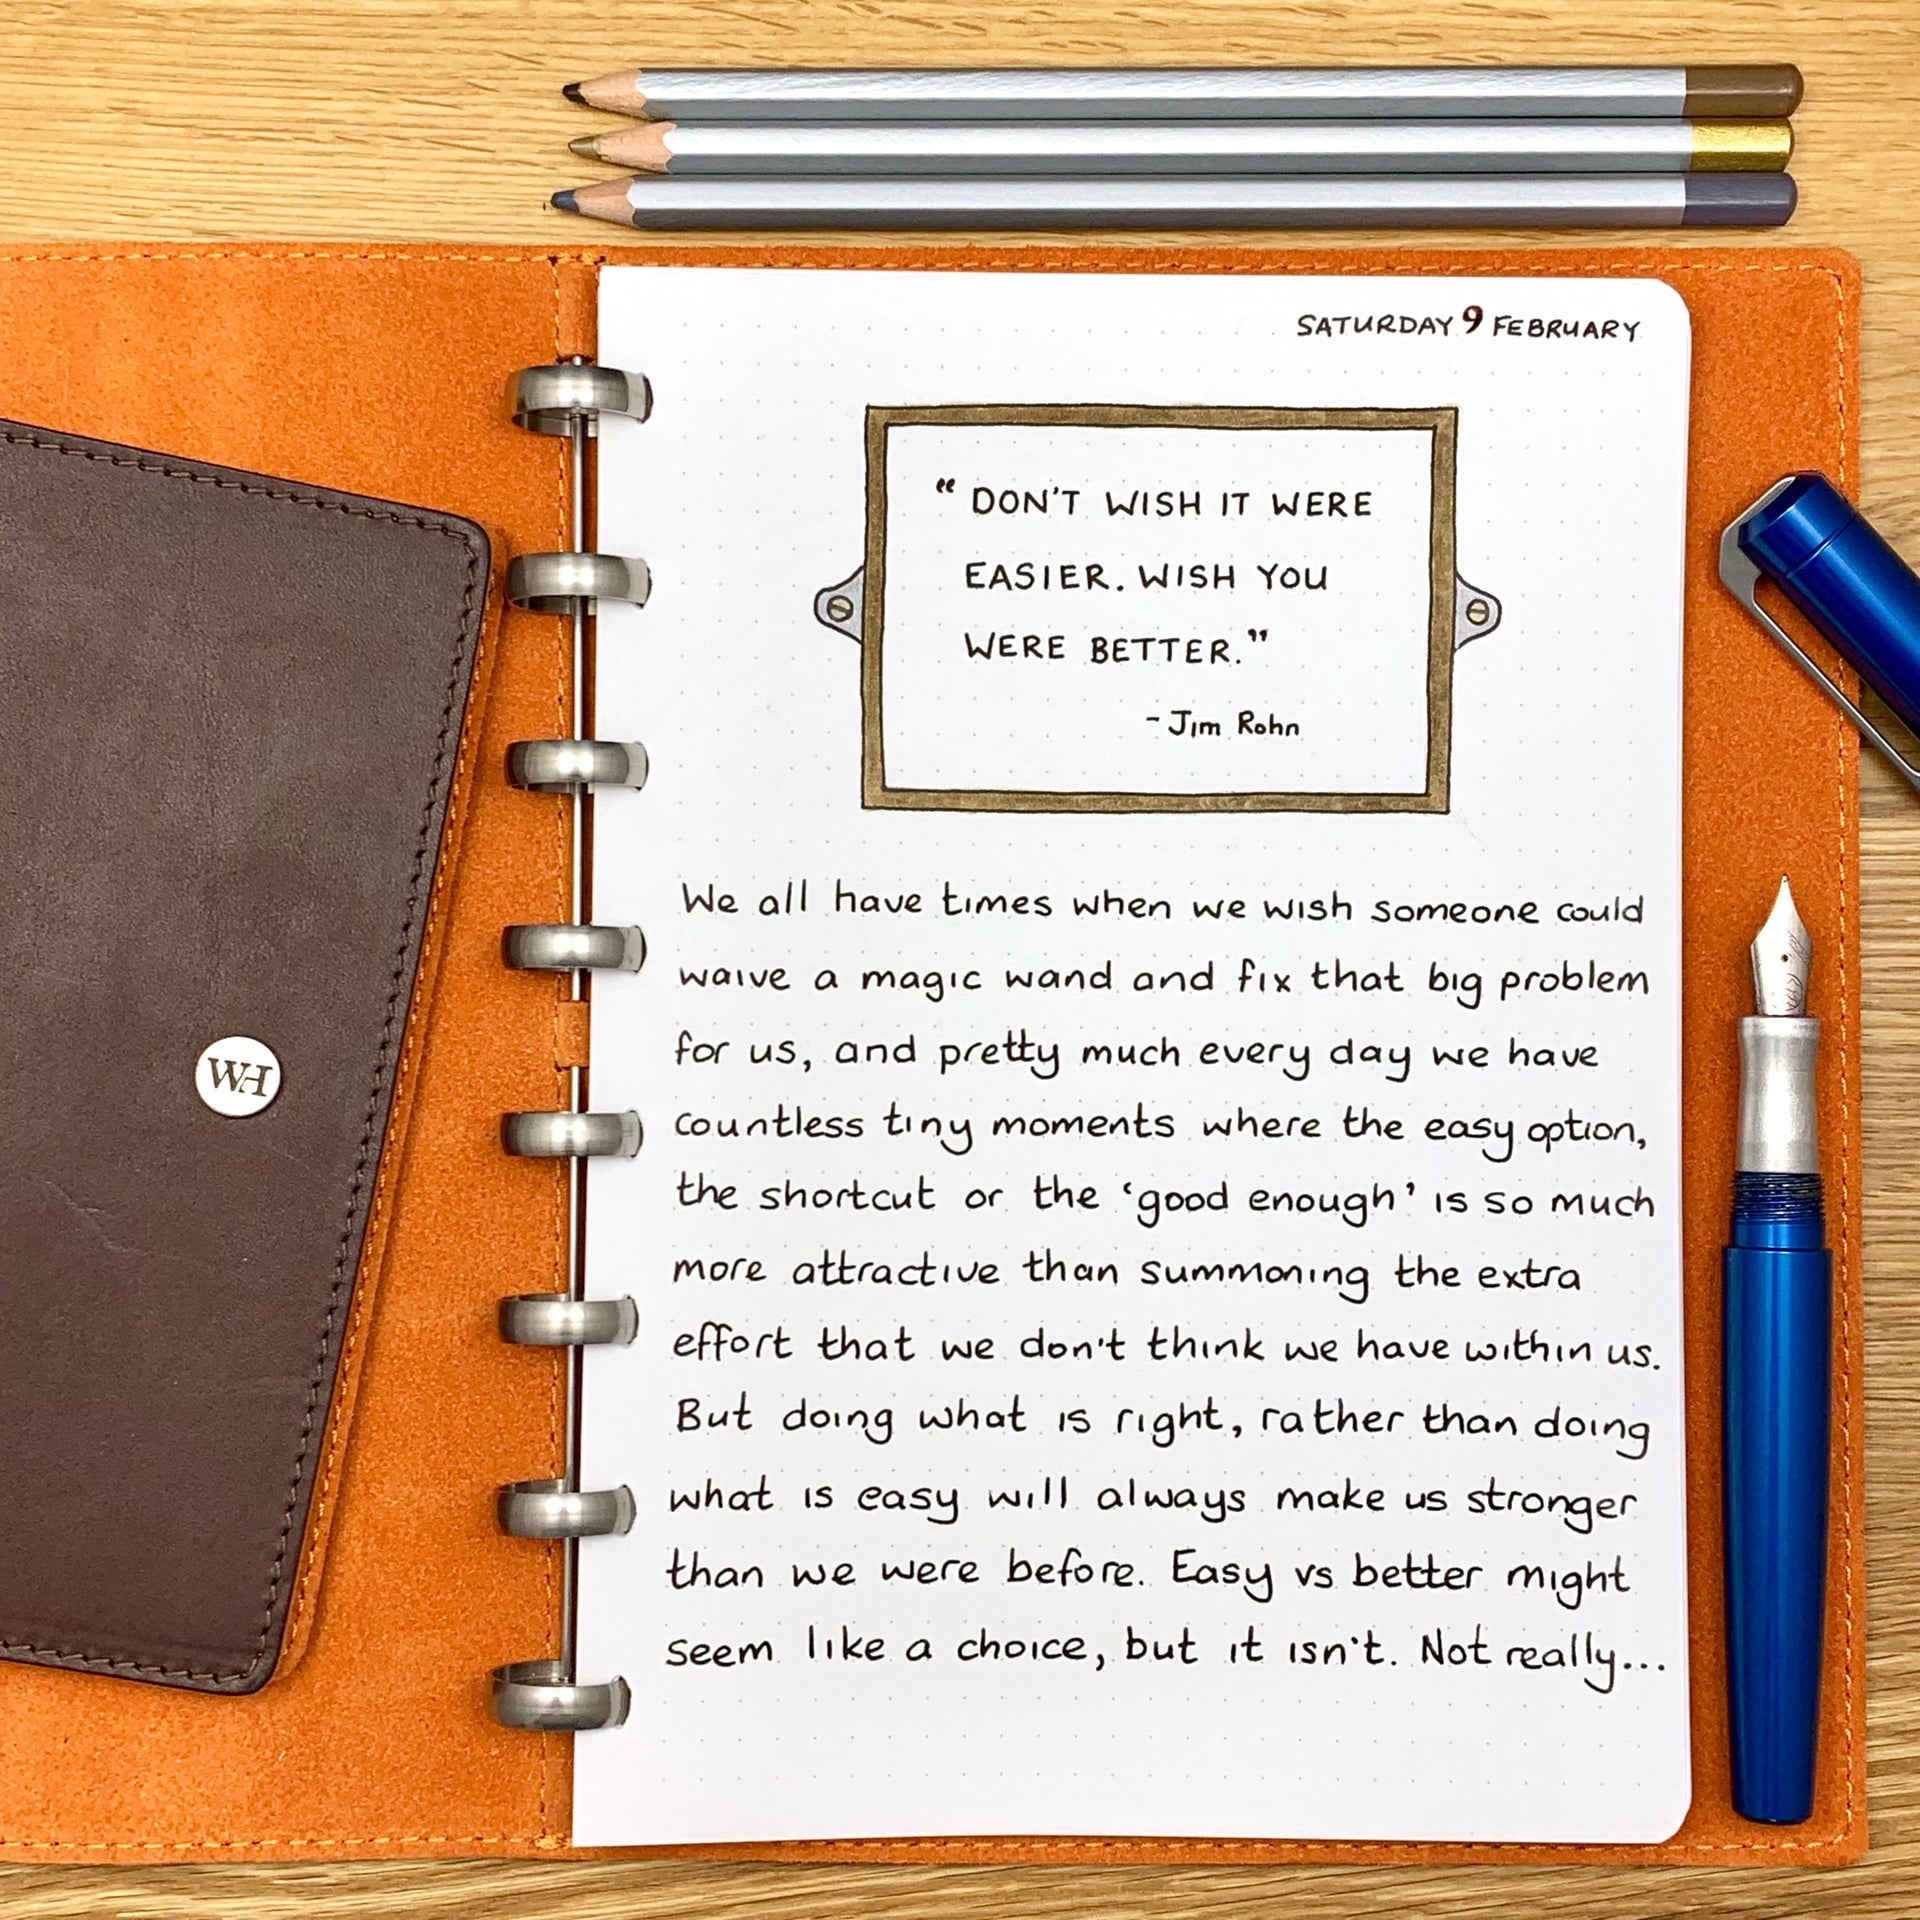 SATURDAY 9 FEBRUARY
“DON'T WISH IT WERE
EASIER. WISH YOU
WERE BETTER.”
- Jim Rohn
We all have times when we wish someone could
waive a magic wand and fix that big problem
for us, and pretty much every day we have
countless tiny moments where the easy option,
the shortcut or the ‘good enough’ is so much
more attractive than summoning the extra
effort that we don't think we have within us.
But doing what is right, rather than doing
what is easy will always make us stronger
than we were before. Easy vs better might
seem like a choice, but it isn't. Not really...
WH